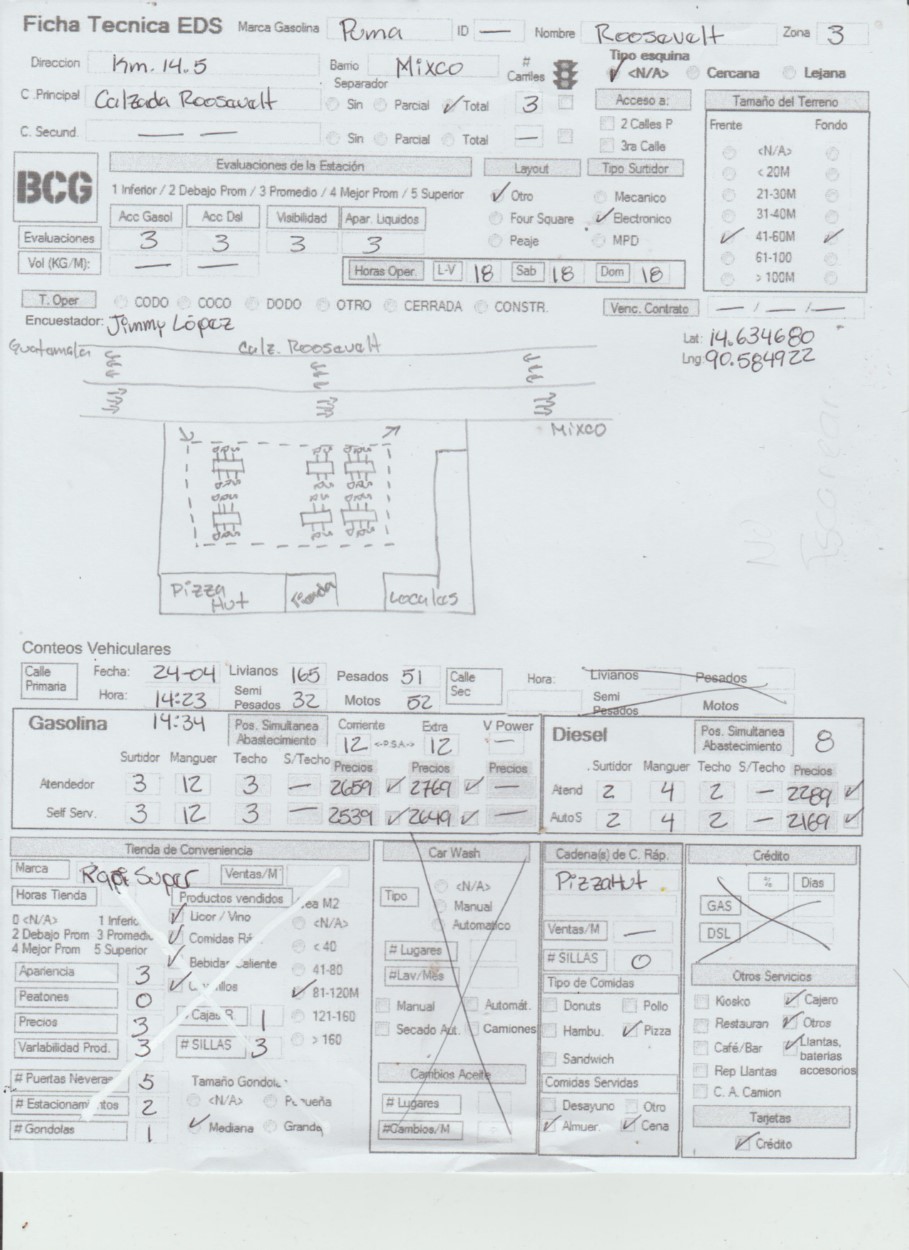 Ficha Tecnica EDS Marca Gasolina Puma ID — Nombre Roosevelt Zona 3
Direccion Km. 14.5 Barrio Mixco # Carriles Tipo esquina <N/A> Cercana Lejana
C .Principal Calzada Roosevelt Separador Sin Parcial Total 3 Acceso a: Tamaño del Terreno
C. Secund. — — Sin Parcial Total — 2 Calles P Frente Fondo
3ra Calle <N/A>
BCG Evaluaciones de la Estación Layout Tipo Surtidor < 20M
1 Inferior / 2 Debajo Prom / 3 Promedio / 4 Mejor Prom / 5 Superior Otro Mecanico 21-30M
Acc Gasol Acc Dsl Visibilidad Apar. Liquidos Four Square Electronico 31-40M
Evaluaciones 3 3 3 3 Peaje MPD 41-60M
Vol (KG/M): — — Horas Oper. L-V 18 Sab 18 Dom 18 61-100
> 100M
T. Oper CODO COCO DODO OTRO CERRADA CONSTR. Venc. Contrato — / — / —
Encuestador: Jimmy López
Lat: 14.634680
Lng: 90.584922
Guatemala Calz. Roosevelt
Mixco
Pizza Hut Tienda Locales
Conteos Vehiculares
Calle Primaria Fecha: 24-04 Livianos 165 Pesados 51 Calle Sec Hora: Livianos Pesados
Hora: 14:23 Semi Pesados 32 Motos 52 Semi Pesados Motos
14:34
Gasolina Pos. Simultanea Abastecimiento Corriente 12 <-P.S.A-> Extra 12 V Power — Diesel Pos. Simultanea Abastecimiento 8
Surtidor Manguer Techo S/Techo Precios Precios Precios Surtidor Manguer Techo S/Techo Precios
Atendedor 3 12 3 — 2659 2769 — Atend 2 4 2 — 2289
Self Serv. 3 12 3 — 2539 2649 — AutoS 2 4 2 — 2169
Tienda de Conveniencia
Marca Rapi Super Ventas/M
Horas Tienda Productos vendidos M2
0 <N/A> Licor / Vino <N/A>
2 Debajo Prom Comidas < 40
4 Mejor Prom 5 Superior Bebidas Caliente 41-80
Apariencia 3 81-120M
Peatones 0 # Cajas R. 1 121-160
Precios 3 # SILLAS 3 > 160
Variabilidad Prod. 3
# Puertas Neveras 5 Tamaño Gondola
# Estacionamientos 2 <N/A> Pequeña
# Gondolas 1 Mediana Grande
Car Wash
Tipo <N/A>
Manual
Automatico
# Lugares
#Lav/Mes
Manual Automát.
Secado Aut. Camiones
Cambios Aceite
# Lugares
#Cambios/M
Cadena(s) de C. Ráp.
Pizza Hut
Ventas/M —
# SILLAS 0
Tipo de Comidas
Donuts Pollo
Hambu. Pizza
Sandwich
Comidas Servidas
Desayuno Otro
Almuer. Cena
Crédito
% Dias
GAS
DSL
Otros Servicios
Kiosko Cajero
Restauran Otros
Café/Bar Llantas, baterias accesorios
Rep Llantas
C. A. Camion
Tarjetas
Crédito